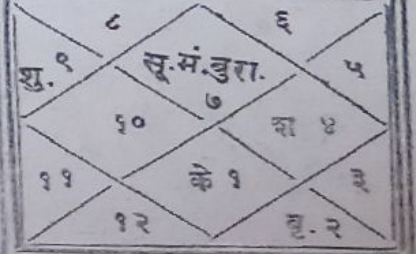 ८ ६
शु. ९ सू. मं. बुरा. ५
७
१० श ४
११ के १ ३
१२ बृ. २